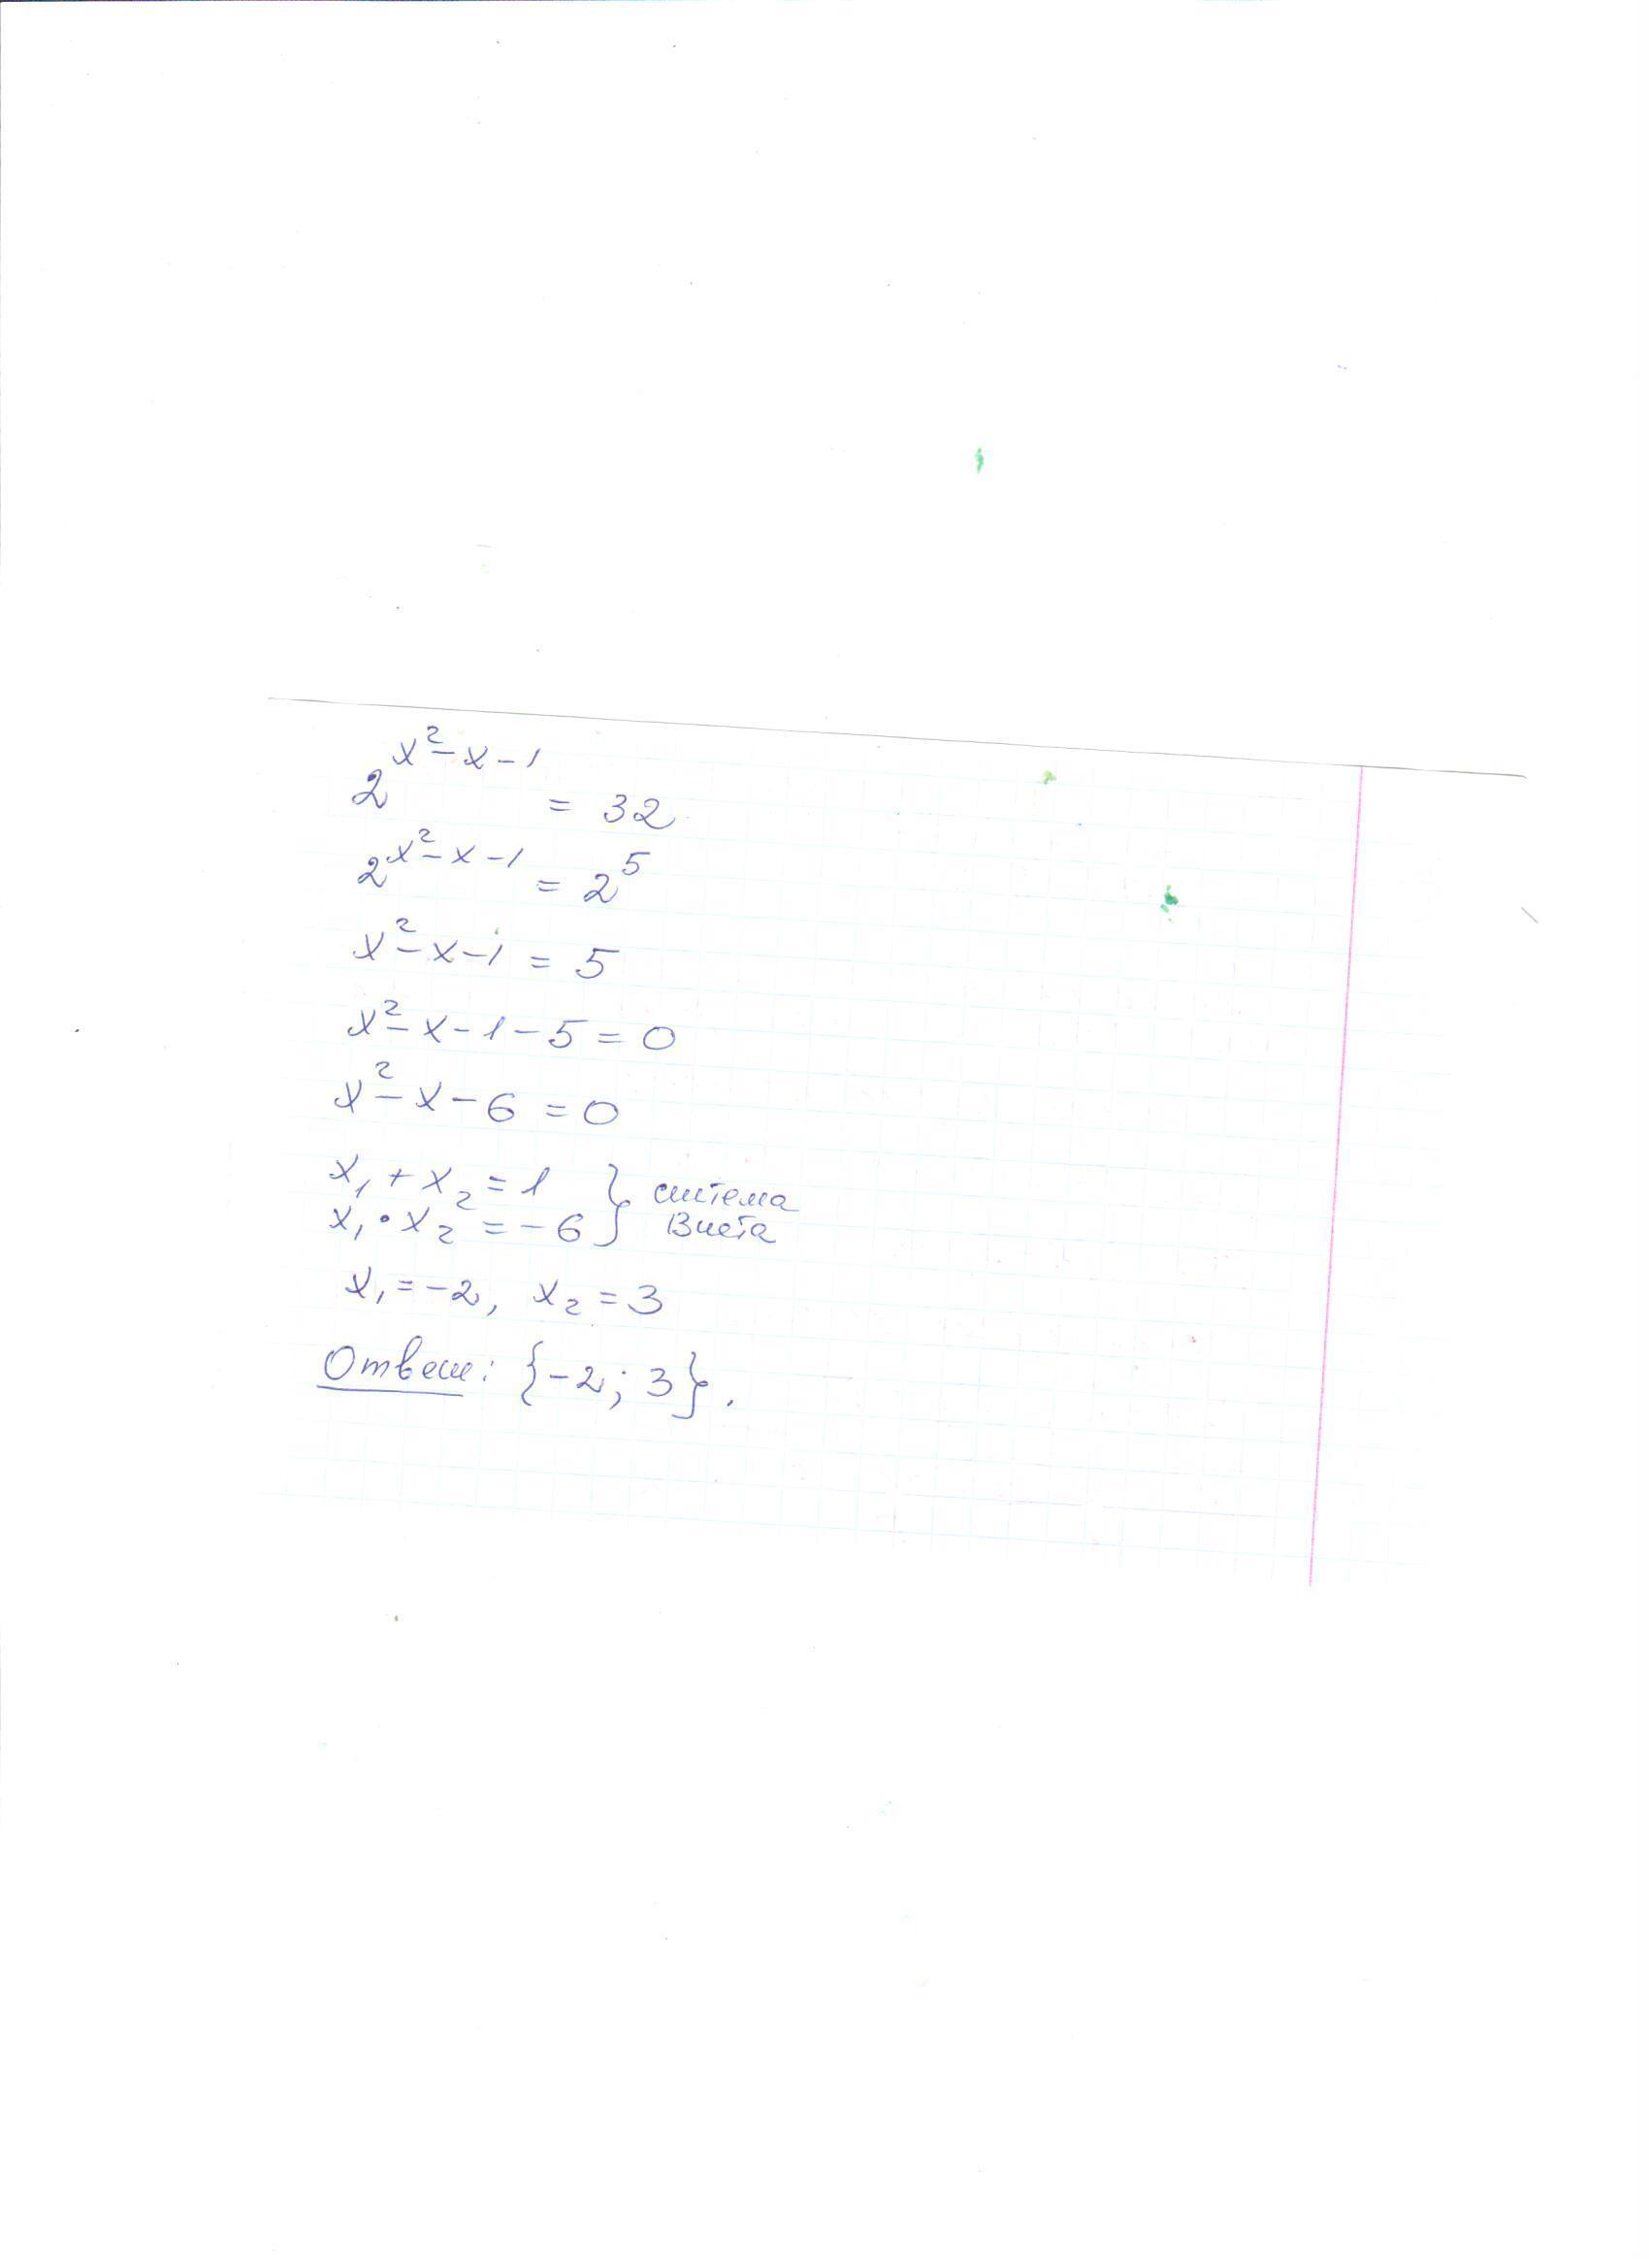 2^{x^2-x-1} = 32
2^{x^2-x-1} = 2^5
x^2-x-1 = 5
x^2-x-1-5=0
x^2-x-6=0
x_1+x_2=1 } система
x_1•x_2=-6 } Виета
x_1=-2, x_2=3
Ответ: {-2; 3}.